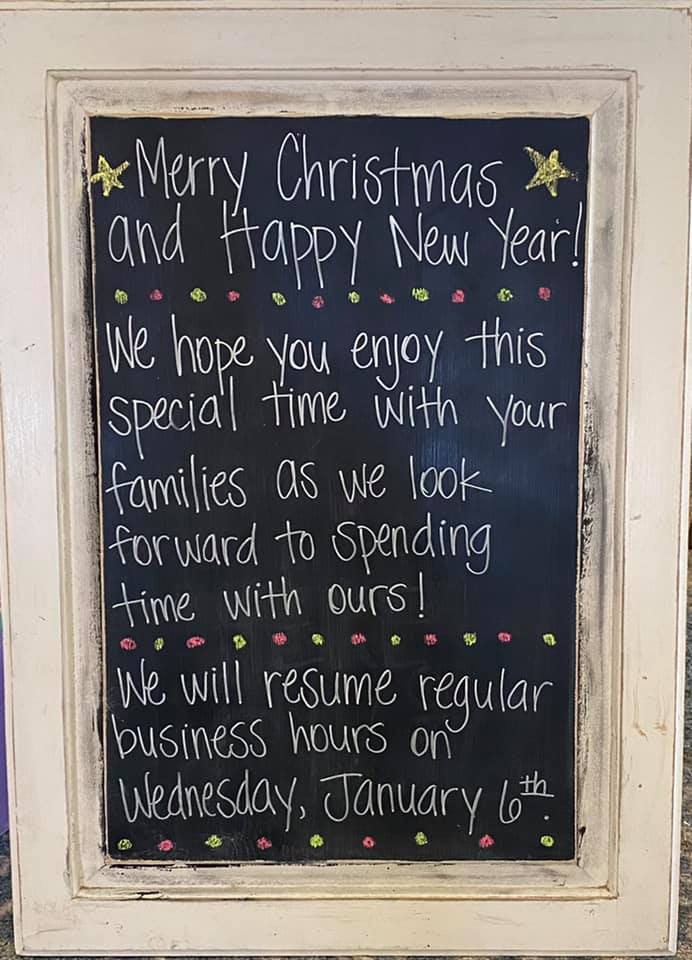 Merry Christmas
and Happy New Year!
We hope you enjoy this
special time with your
families as we look
forward to spending
time with ours!
We will resume regular
business hours on
Wednesday, January 6th.